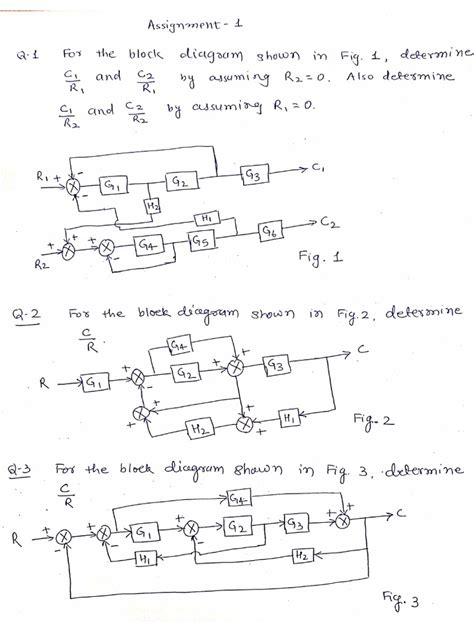 Assignment - 1
Q-1 For the block diagram shown in Fig. 1, determine
C1/R1 and C2/R1 by assuming R2 = 0. Also determine
C1/R2 and C2/R2 by assuming R1 = 0.
R1 + - - G1 G2 G3 C1
H2
H1
R2 + + + - G4 G5 G6 C2
Fig. 1
Q-2 For the block diagram shown in Fig. 2, determine
C/R.
G4
R G1 + - G2 + + G3 C
+ + H2 + + H1
Fig. 2
Q-3 For the block diagram shown in Fig. 3, determine
C/R
G4
R + - + - G1 + - G2 G3 + + C
H1 H2
Fig. 3